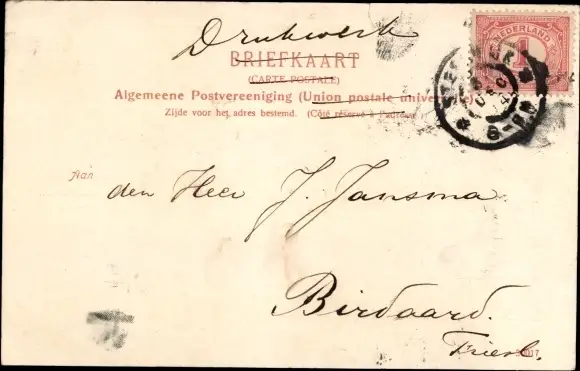 Drukwerk
BRIEFKAART
(CARTE POSTALE)
Algemeene Postvereeniging (Union postale universelle)
Zijde voor het adres bestemd. (Côté réservé à l'adresse)
NEDERLAND
1
Aan
den Heer J. Jansma
Birdaard.
Friesl.